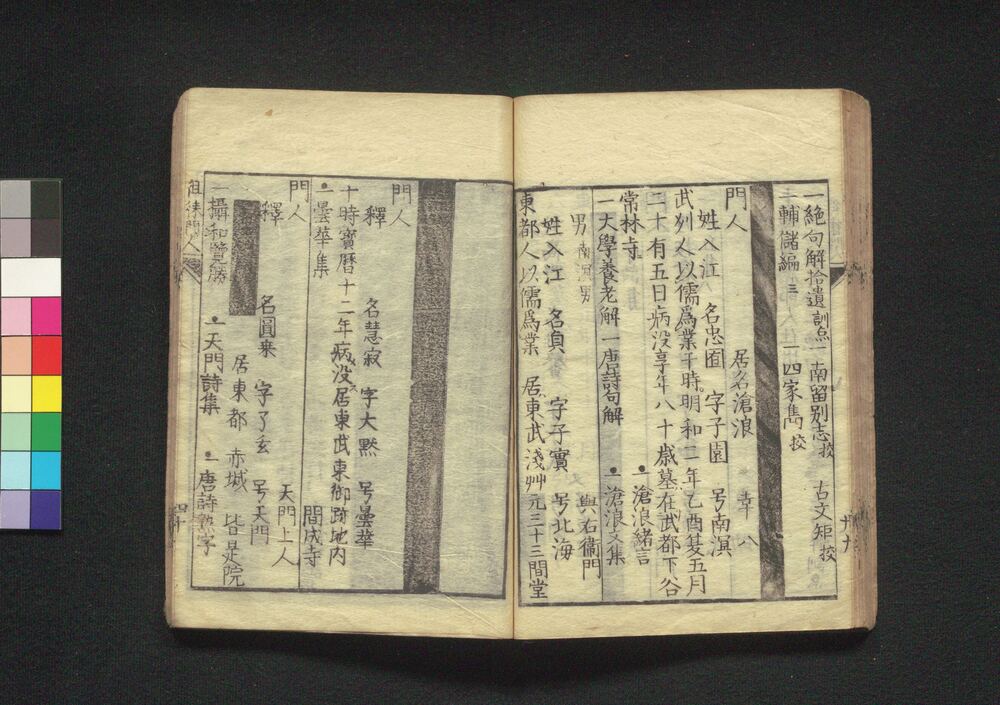 一絶句解拾遺訓点 一南留別志挍 古文矩挍
輔儲編三 一四家雋挍
門人 居名滄浪 幸八
姓入江 名忠囿 字子園 号南溟
武列人以儒爲業于時明和二年乙酉夏五月
二十有五日病没享年八十歳墓在武都下谷
常林寺 一滄浪緒言
一大學養老解 一唐詩句解 一滄浪文集
男 南溟男 與右衞門
姓入江 名貞 字子實 号北海
東都人以儒爲業 居東武淺艸元三十三間堂
門人
釋 名慧寂 字大黙 号曇華
十時寳暦十二年病没居東武東御跡地内
一曇華集 間成寺
門人 天門上人
釋 名圓来 字了玄 号天門
居東都 赤城 皆是院
一攝和覽勝 一天門詩集 一唐詩熟字
徂徠門人 四十